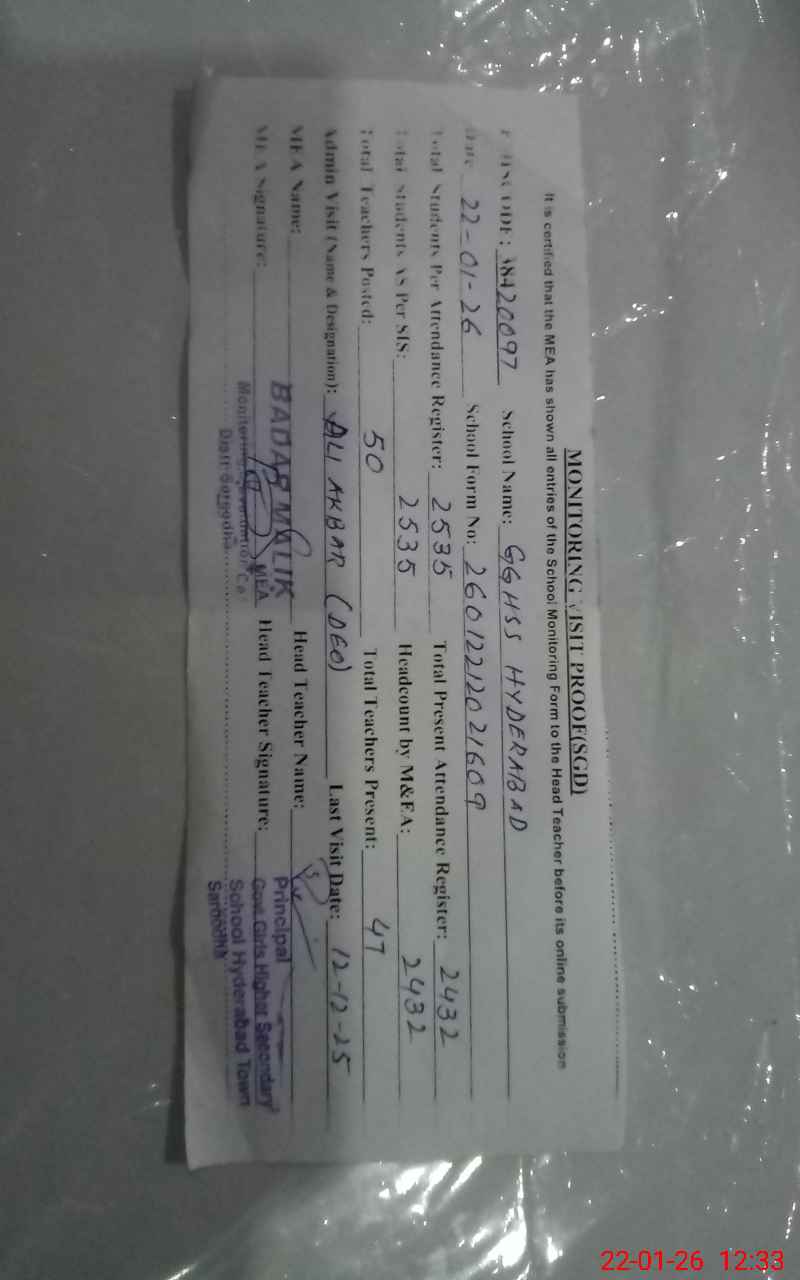 MONITORING VISIT PROOF(SGD)
It is certified that the MEA has shown all entries of the School Monitoring Form to the Head Teacher before its online submission
EMIS CODE: 38420097 School Name: GGHSS HYDERABAD
Date 22-01-26 School Form No: 26012212021609
Total Students Per Attendance Register: 2535 Total Present Attendance Register: 2432
Total Students AS Per SIS: 2535 Headcount by M&EA: 2432
Total Teachers Posted: 50 Total Teachers Present: 47
Admin Visit (Name & Designation): ALI AKBAR (DEO) Last Visit Date: 12-12-25
MEA Name: BADAR MALIK Head Teacher Name:
MEA Signature: MEA Head Teacher Signature:
Distt: Sargodha
Principal
Govt. Girls Higher Secondary
School Hyderabad Town
Sargodha
22-01-26 12:33